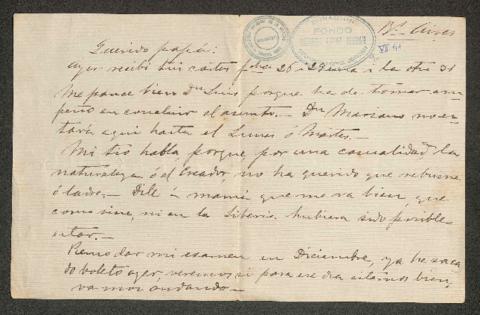 Bs. Aires
FONDO
VII 41
Querido papá:
Ayer recibí tus cartas fchas 26 i 29 una i la otra 31
Me parece bien Dn Luis porque ha de tomar em-
peño en concluir el asunto.— Dn Mariano no es-
tará aquí hasta el Lunes ó Martes.—
Mi tio habla porque por una casualidad la
naturaleza ó el Creador, no ha querido que rebuzne
ó ladre.— Dile á mamá que me va bien, que
como vine, ni en la Siberia hubiera sido posible
estar.—
Pienso dar mi examen en Diciembre, ya he saca
do boleto ayer, veremos si para ese dia estamos bien,
vamos andando.—